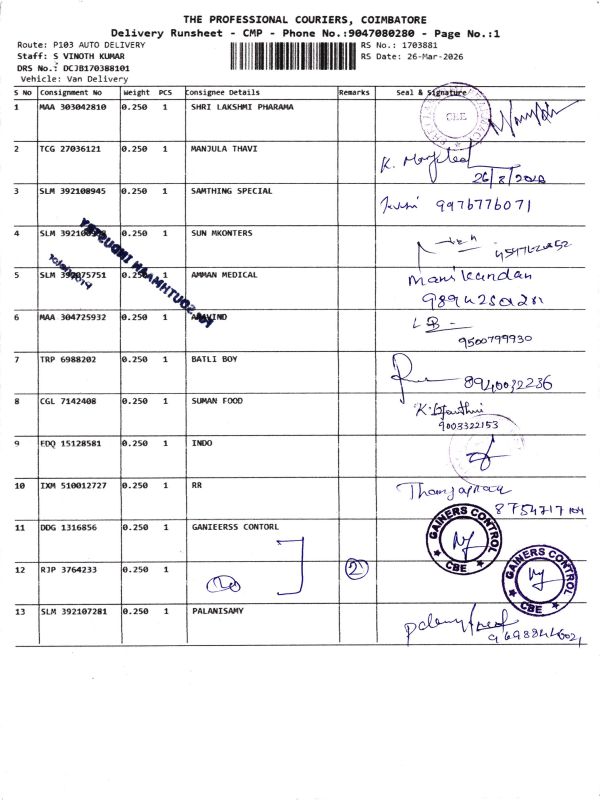 THE PROFESSIONAL COURIERS, COIMBATORE
Delivery Runsheet - CMP - Phone No.:9047080280 - Page No.:1
Route: P103 AUTO DELIVERY RS No.: 1703881
Staff: S VINOTH KUMAR RS Date: 26-Mar-2026
DRS No.: DCJB170388101
Vehicle: Van Delivery
S No Consignment No Weight PCS Consignee Details Remarks Seal & Signature
1 MAA 303042810 0.250 1 SHRI LAKSHMI PHARAMA
CBE
2 TCG 27036121 0.250 1 MANJULA THAVI
3 SLM 392108945 0.250 1 SAMTHING SPECIAL 9976776071
4 SLM 0.250 1 SUN MKONTERS
5 SLM 0.250 1 AMMAN MEDICAL Manikandan
6 MAA 304725932 0.250 1 ARAVIND
9500799930
7 TRP 6988202 0.250 1 BATLI BOY 8940032236
8 CGL 7142408 0.250 1 SUMAN FOOD
9003322153
9 EDQ 15128581 0.250 1 INDO
10 IXM 510012727 0.250 1 RR
11 DDG 1316856 0.250 1 GANIEERSS CONTORL
GAINERS CONTROL
CBE
12 RJP 3764233 0.250 1 2
GAINERS CONTROL
CBE
13 SLM 392107281 0.250 1 PALANISAMY